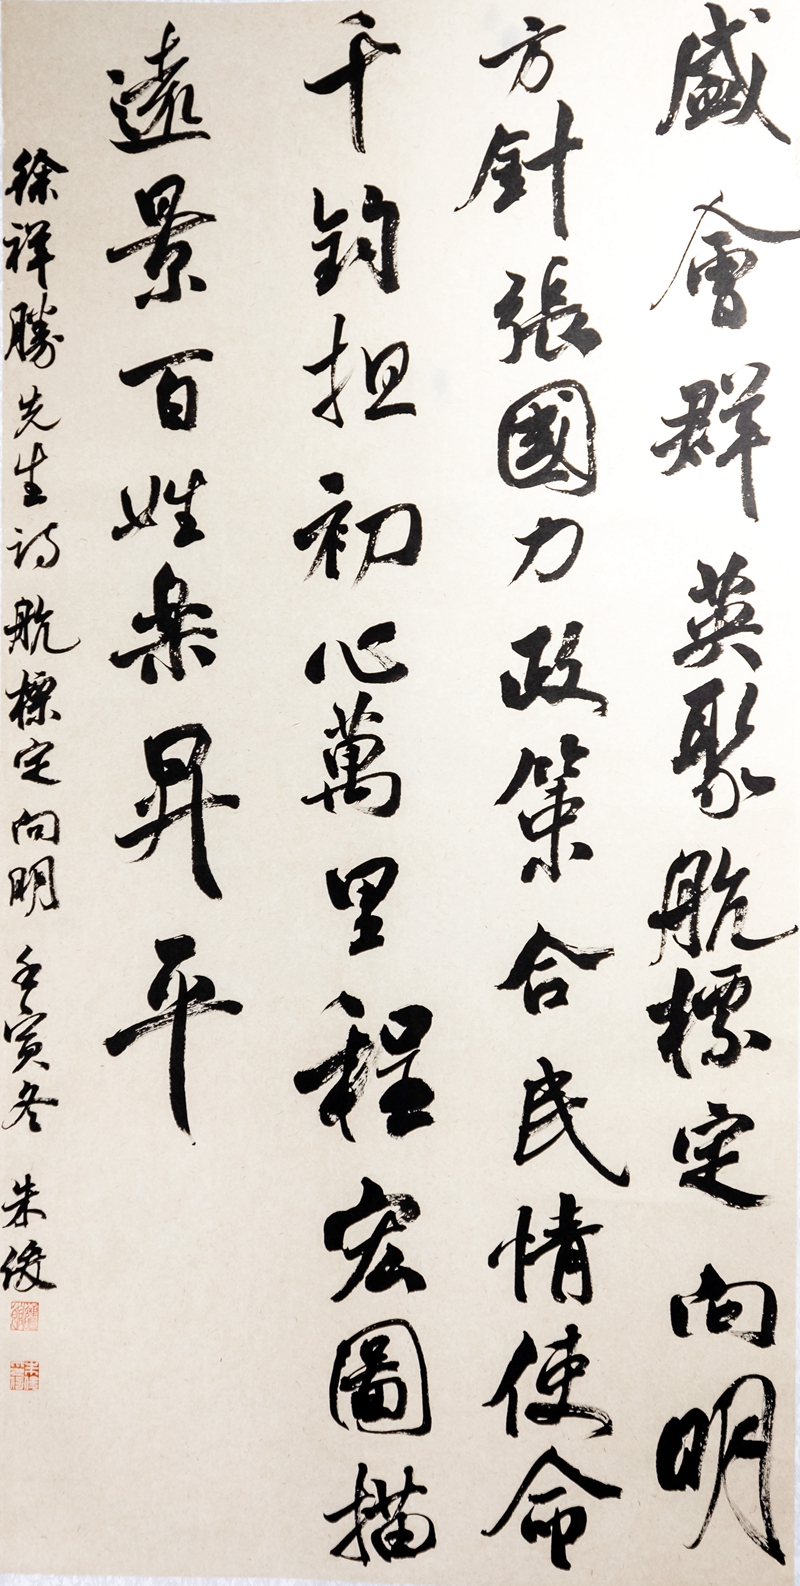 盛會群英聚航標定向明
方針張國力政策合民情使命
千鈞担初心萬里程宏圖描
遠景百姓樂昇平
徐祥勝先生詩航標定向明 壬寅冬 朱俊